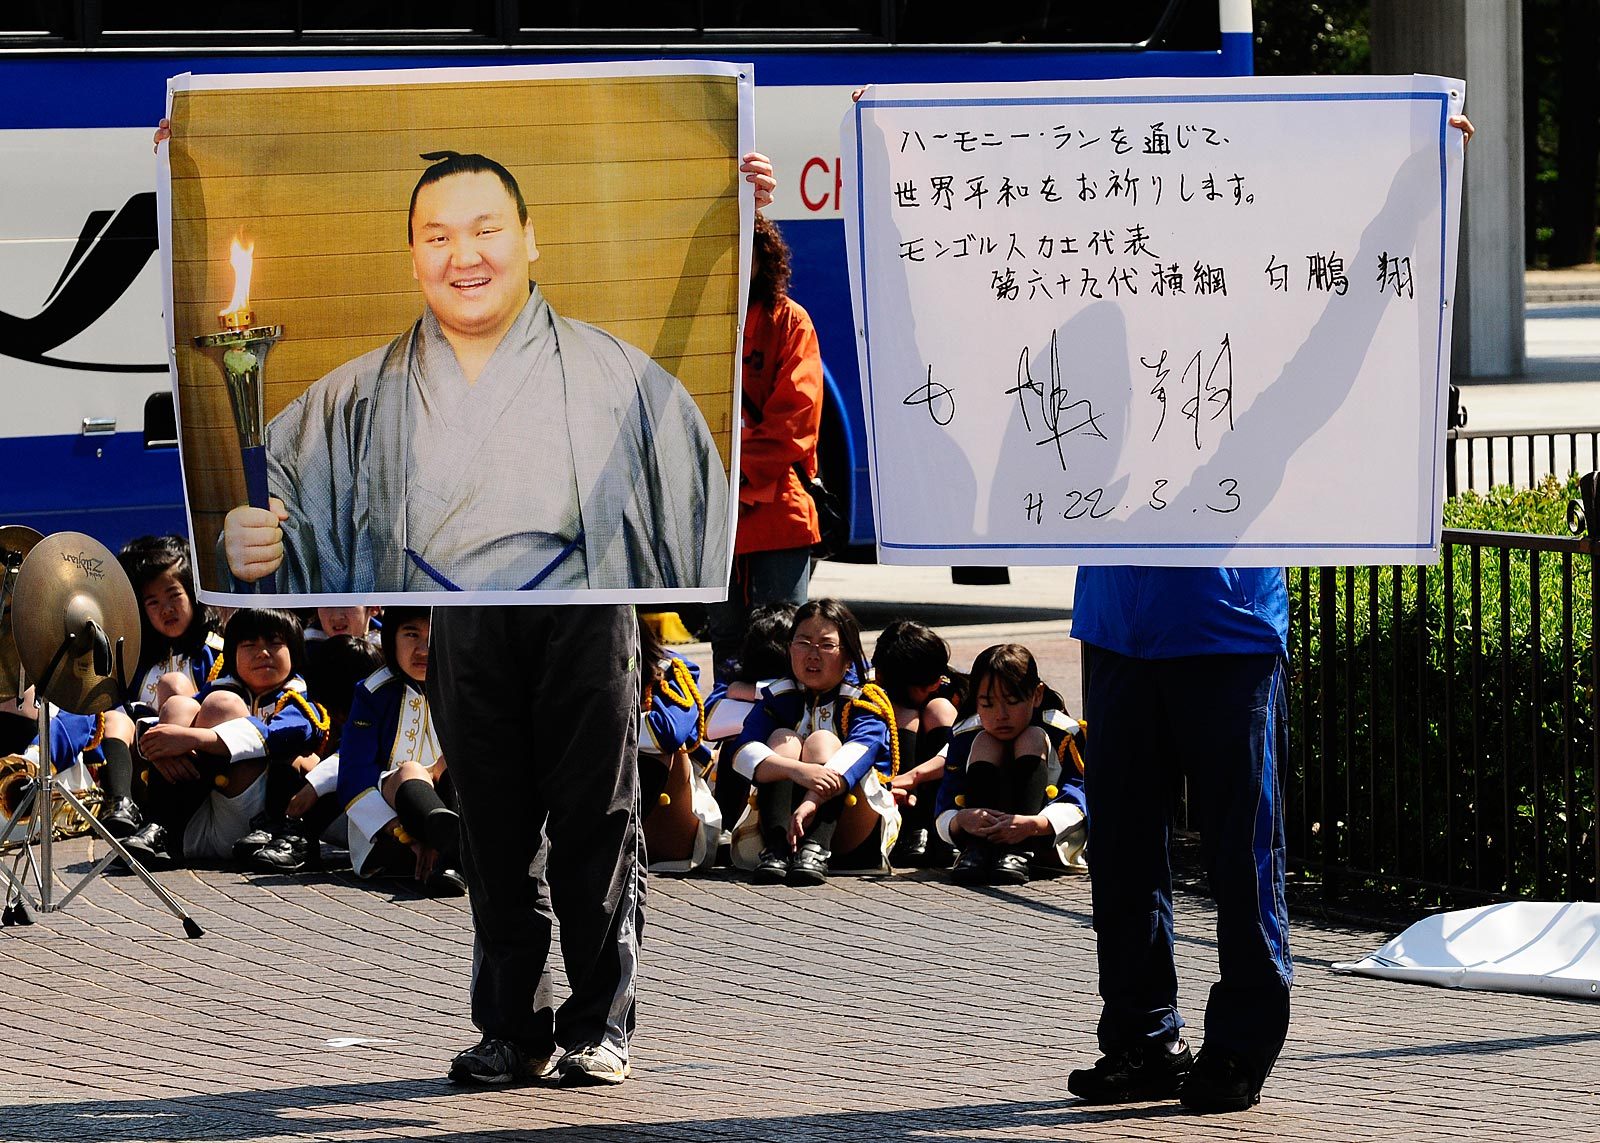 ハーモニー・ランを通じて、
世界平和をお祈りします。
モンゴル人力士代表
第六十九代横綱 白鵬 翔
白鵬 翔
H.22.3.3
CH
Zildjian